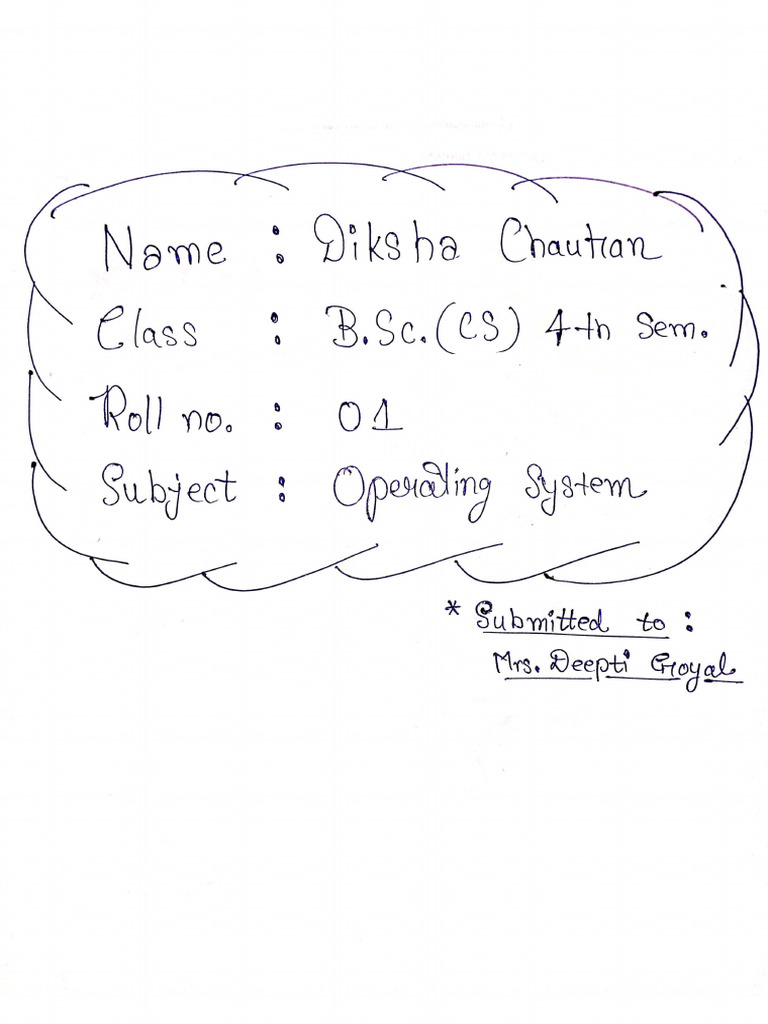 Name : Diksha Chauhan
Class : B.Sc.(CS) 4th Sem.
Roll no. : 01
Subject : Operating System
* Submitted to :
Mrs. Deepti Goyal